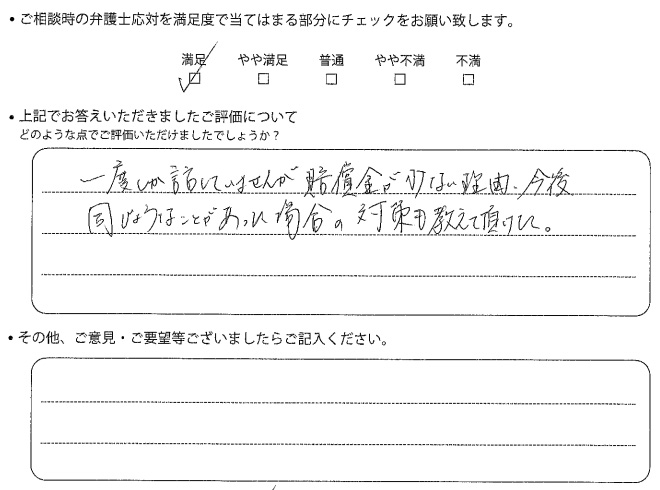 • ご相談時の弁護士応対を満足度で当てはまる部分にチェックをお願い致します。
満足 やや満足 普通 やや不満 不満
• 上記でお答えいただきましたご評価について
どのような点でご評価いただけましたでしょうか?
一度しか話していませんが賠償金が少ない理由、今後
同じようなことがあった場合の対策も教えて頂けた。
• その他、ご意見・ご要望等ございましたらご記入ください。